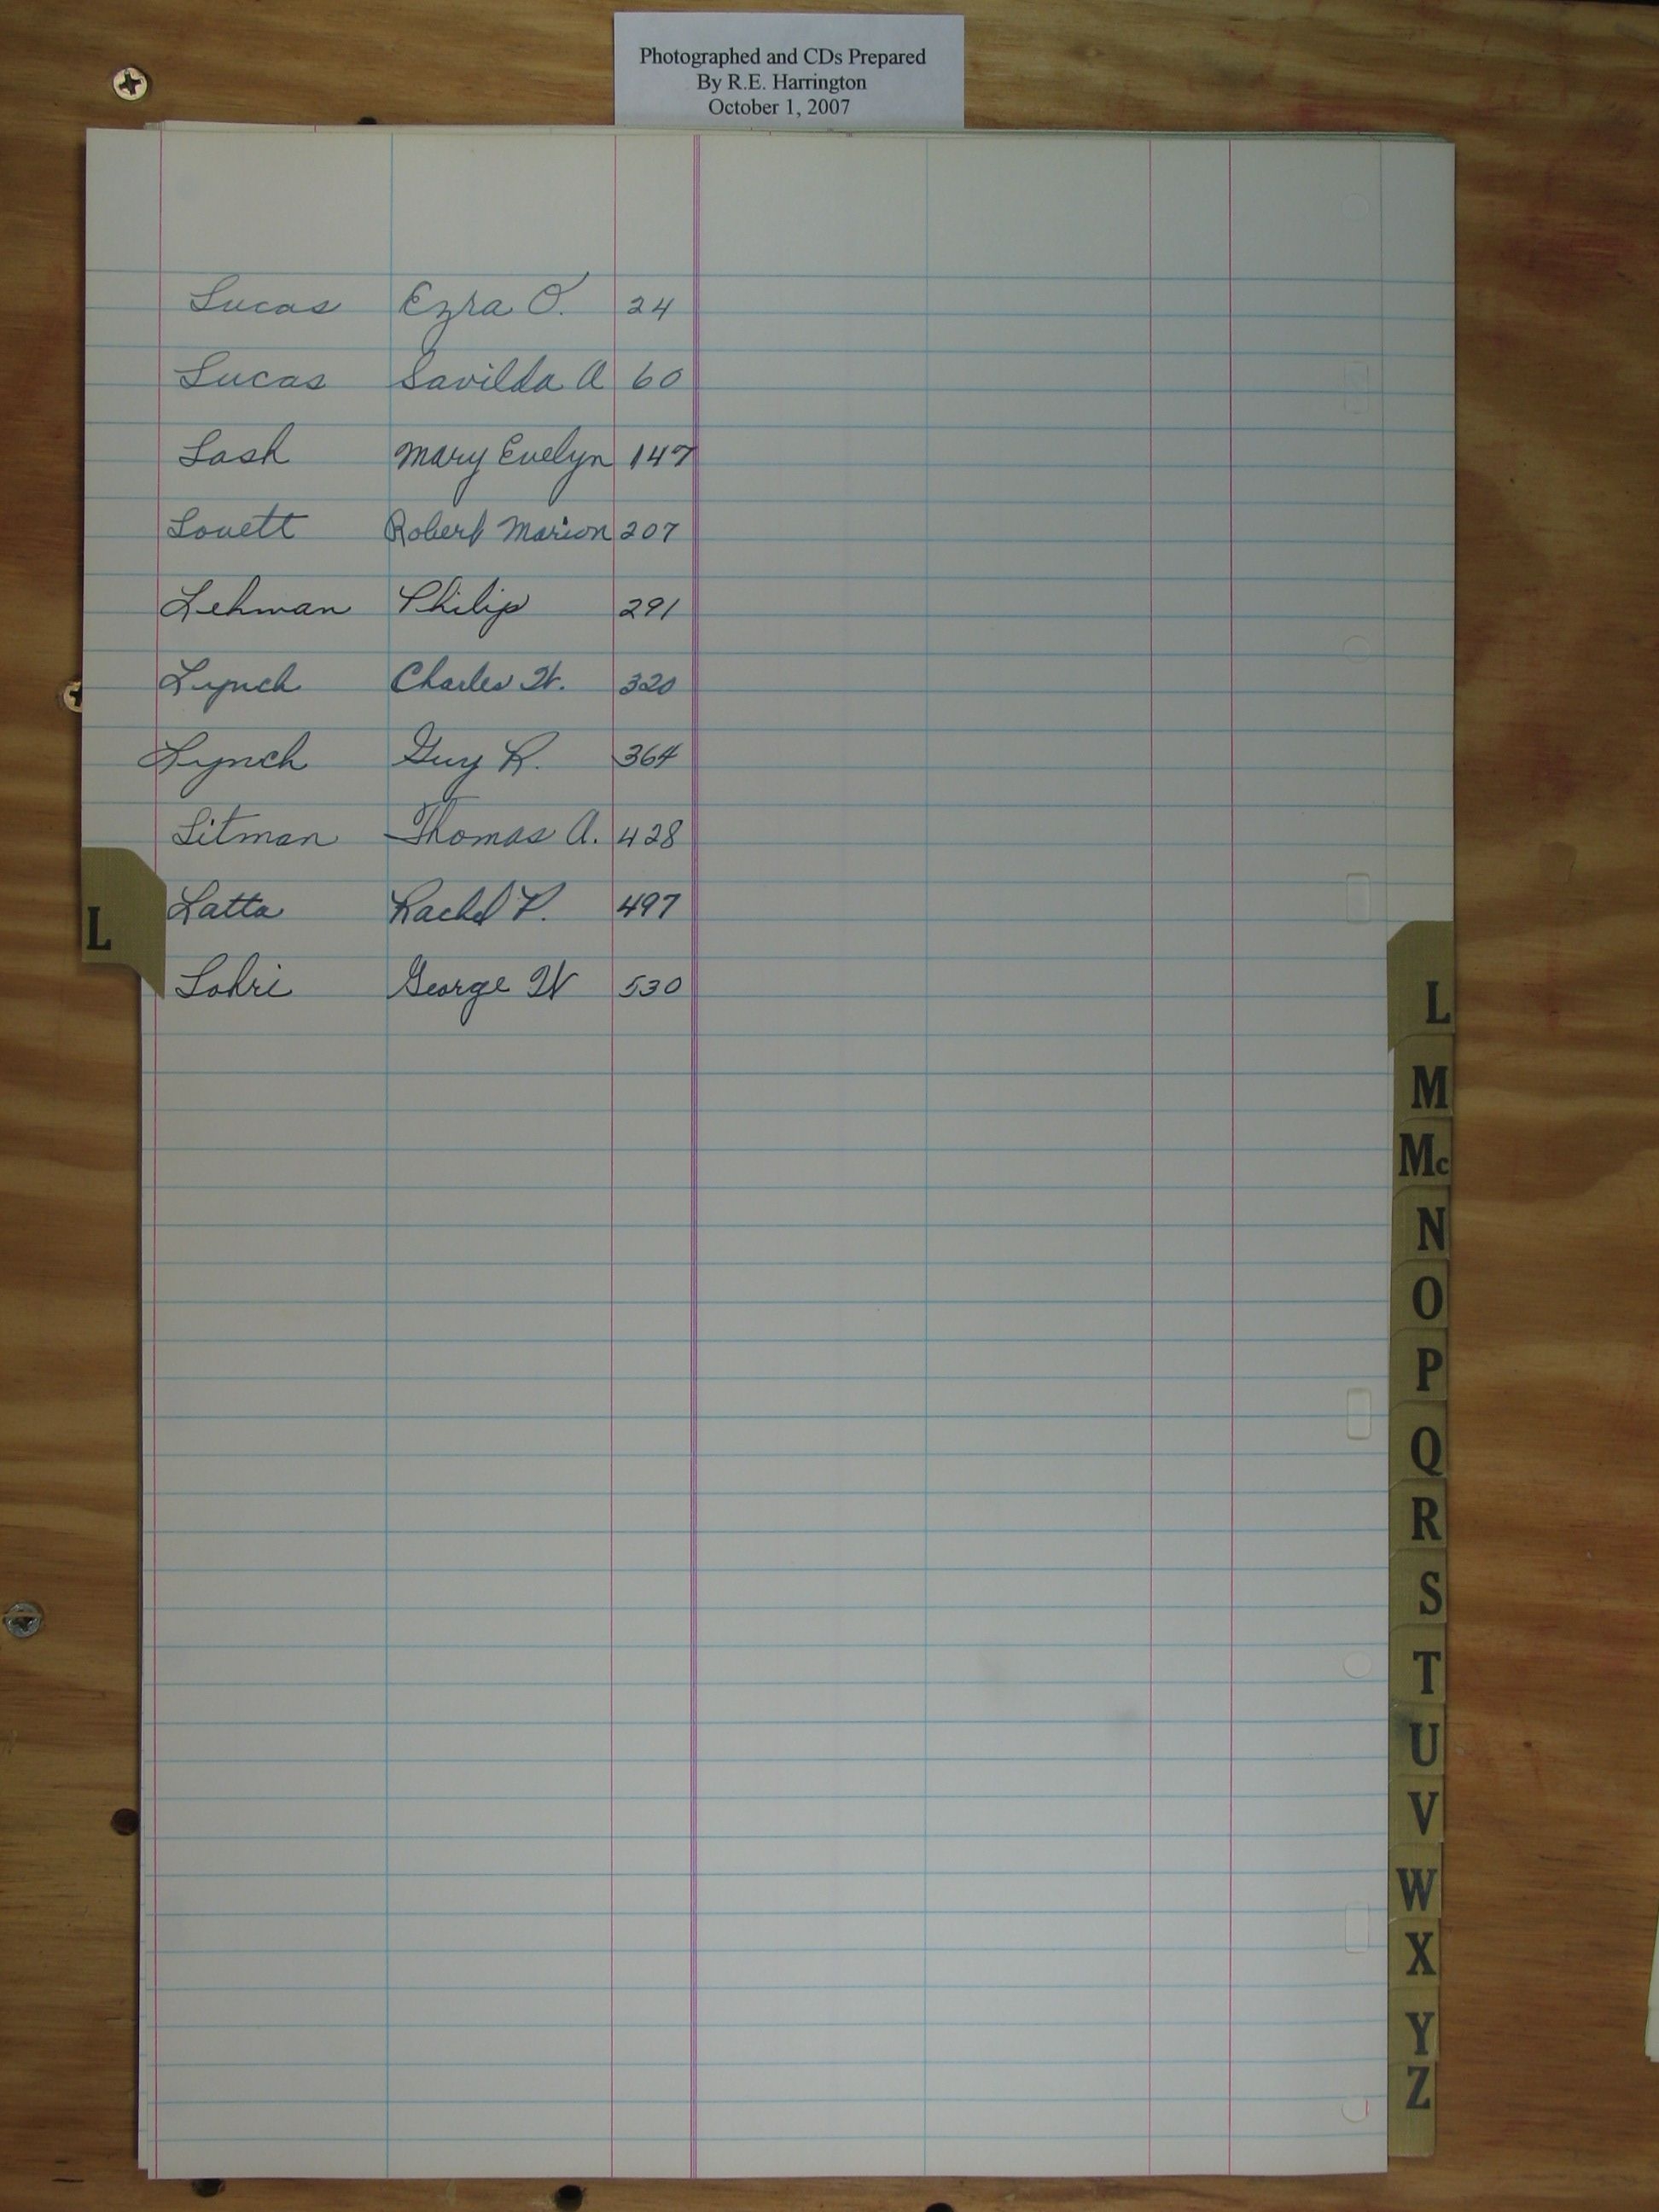 Photographed and CDs Prepared
By R.E. Harrington
October 1, 2007
Lucas Ezra O. 24
Lucas Savilda A 60
Lash Mary Evelyn 147
Lovett Robert Marion 207
Lehman Philip 291
Lynch Charles W. 320
Lynch Guy R. 364
Litman Thomas A. 428
Latta Rachel P. 497
Lohri George W 530
L
L
M
Mc
N
O
P
Q
R
S
T
U
V
W
X
Y
Z